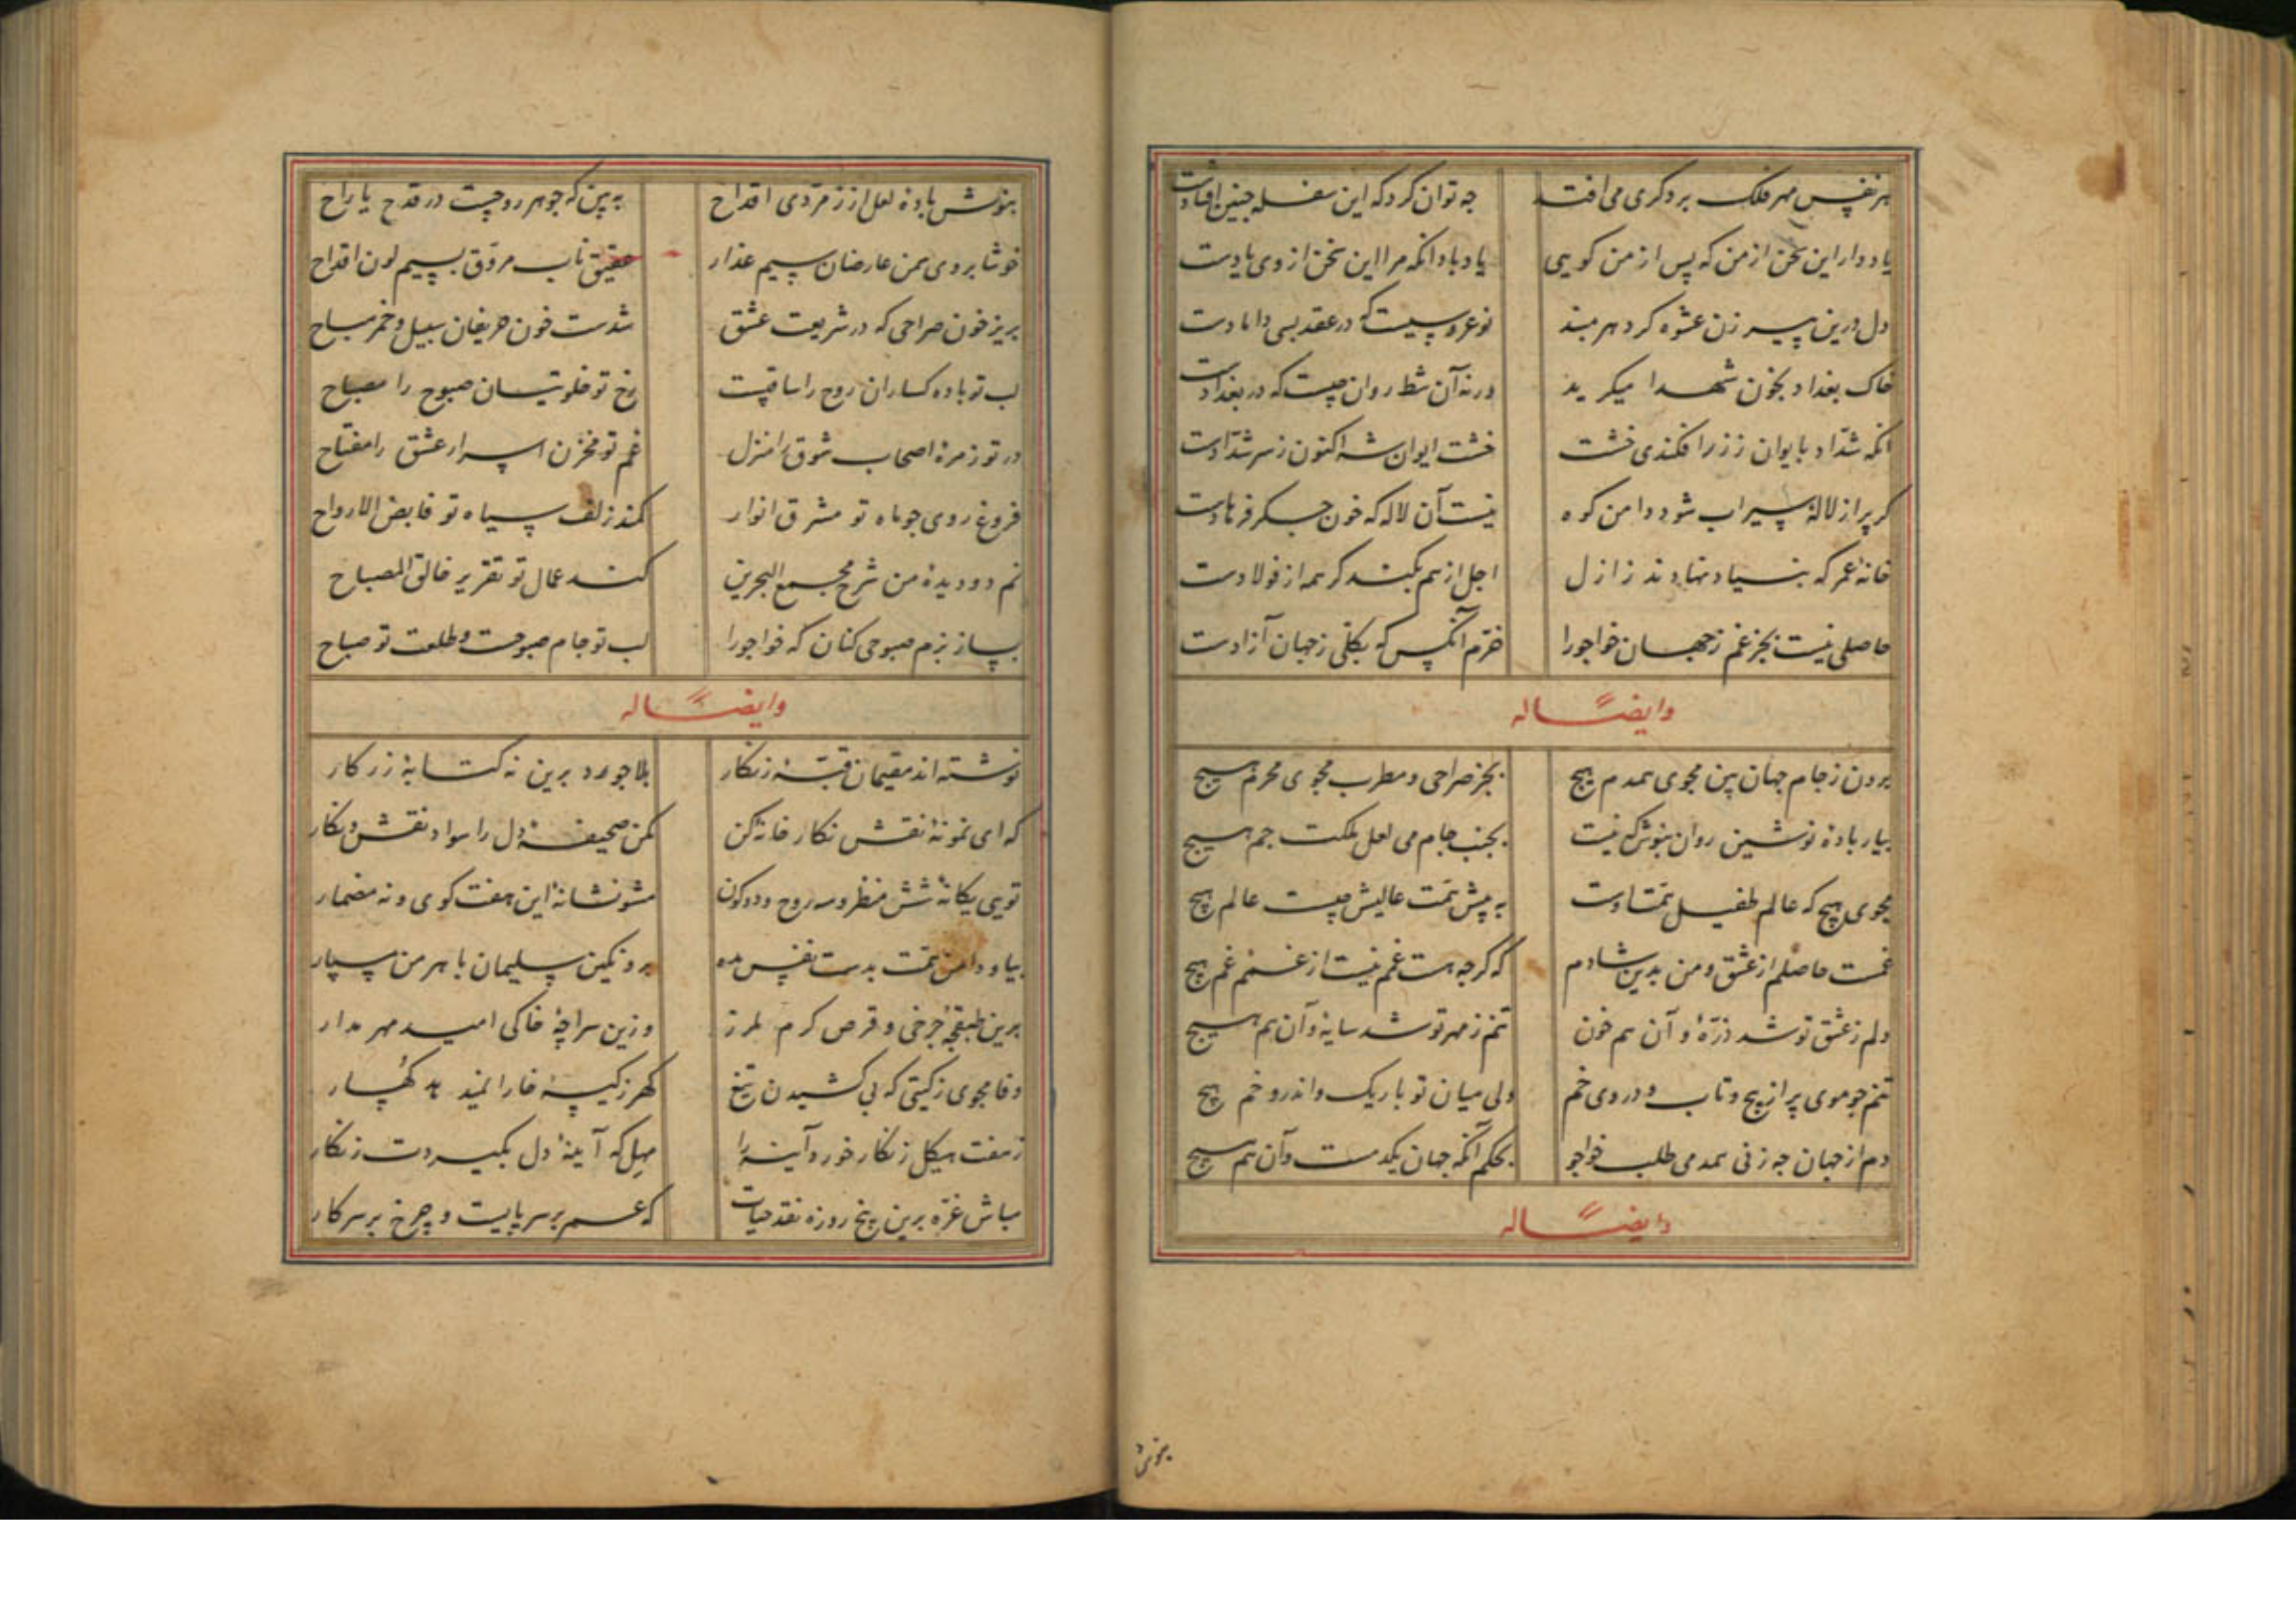 هر نفس مهر فلک بر دکری می افتد جه توان کرد که این سفله جنین افتادست
یاد دار این سخن از من که پس از من کویی یاد باد انکه مرا این سخن از وی یادست
دل درین پیر زن عشوه کر دهر مبند نو عروسیست که در عقد بسی دامادست
خاک بغداد بخون شهدا میکرید ورنه آن شط روان چیست که در بغدادست
انکه شداد بایوان ز زر افکندی خشت خشت ایوان شه اکنون ز سر شدادست
کر پر از لالهٔ سیراب شود دامن کوه نیست آن لاله که خون جکر فرهادست
خانهٔ عمر که بنیاد نهادند ز ازل اجل از هم بکند کر همه از فولادست
حاصلی نیست بجز غم ز جهان خواجو را خرّم آنکس که بکلّی ز جهان آزادست
وایضاً له
برون ز جام جهان بین مجوی همدم هیچ بجز صراحی و مطرب مجوی محرم هیچ
بیار بادهٔ نوشین روان بنوش که نیست بجنب جام می لعل ملکت جم هیچ
مجوی هیچ که عالم طفیل همّت اوست به پیش همّت عالیش چیست عالم هیچ
غمست حاصلم از عشق و من بدین شادم که کرجه هست غمم نیست از غم غم هیچ
دلم ز عشق تو شد ذرّهٔ و آن هم خون تنم ز مهر تو شد سایهٔ و آن هم هیچ
تنم جو موی پر از پیچ و تاب و در وی خم ولی میان تو باریک و اندرو خم هیچ
دم از جهان جه زنی همدمی طلب خواجو بحکم آنکه جهان یکدمست و آن هم هیچ
وایضاً له
بنوش
بنوش بادهٔ لعل از زمرّدی اقداح به بین که جوهر روحیست در قدح یا راح
خوشا بروی سمن عارضان سیم عذار عقیق ناب مروّق بسیم لون اقداح
بریز خون صراحی که در شریعت عشق شدست خون حریفان سبیل و خمر مباح
لب تو باده کساران روح را ساقیست رخ تو خلوتیان صبوح را مصباح
در تو زمرهٔ اصحاب شوق را منزل غم تو مخزن اسرار عشق را مفتاح
فروغ روی جو ماه تو مشرق انوار کمند زلف سیاه تو قابض الارواح
نم دو دیدهٔ من شرح مجمع البحرین کند تو تقریر فالق
بساز بزم صبوحی کنان که خواجو را لب تو جام صبوحست و طلعت تو صباح
وایضاً له
نوشته اند مقیمان قبّهٔ زنکار بلاجورد برین نه کتابهٔ زر کار
که ای نمونهٔ نقش نکار خانهٔ کن مکن صحیفهٔ دل را سواد نقش و نکار
تویی یکانهٔ شش منظر و سه روح و دو کون مشو نشانهٔ این هفت کوی و نه مضمار
بیا و دامن همّت بدست نفس مده برو نکین سلیمان باهرمن مسپار
برین طبقچهٔ جرخی و قرص کرم ملرز وزین سراچهٔ خاکی امید مهر مدار
وفا مجوی ز کیتی که بی کشیدن تیغ کهر ز کیسهٔ خارا
ز هفت هیکل زنکار خورد آینه را مهل که آینهٔ دل بکیردت زنکار
مباش غرّه برین پنج روزه نقد حیات که عمر بر سر پایست و چرخ بر سر کار